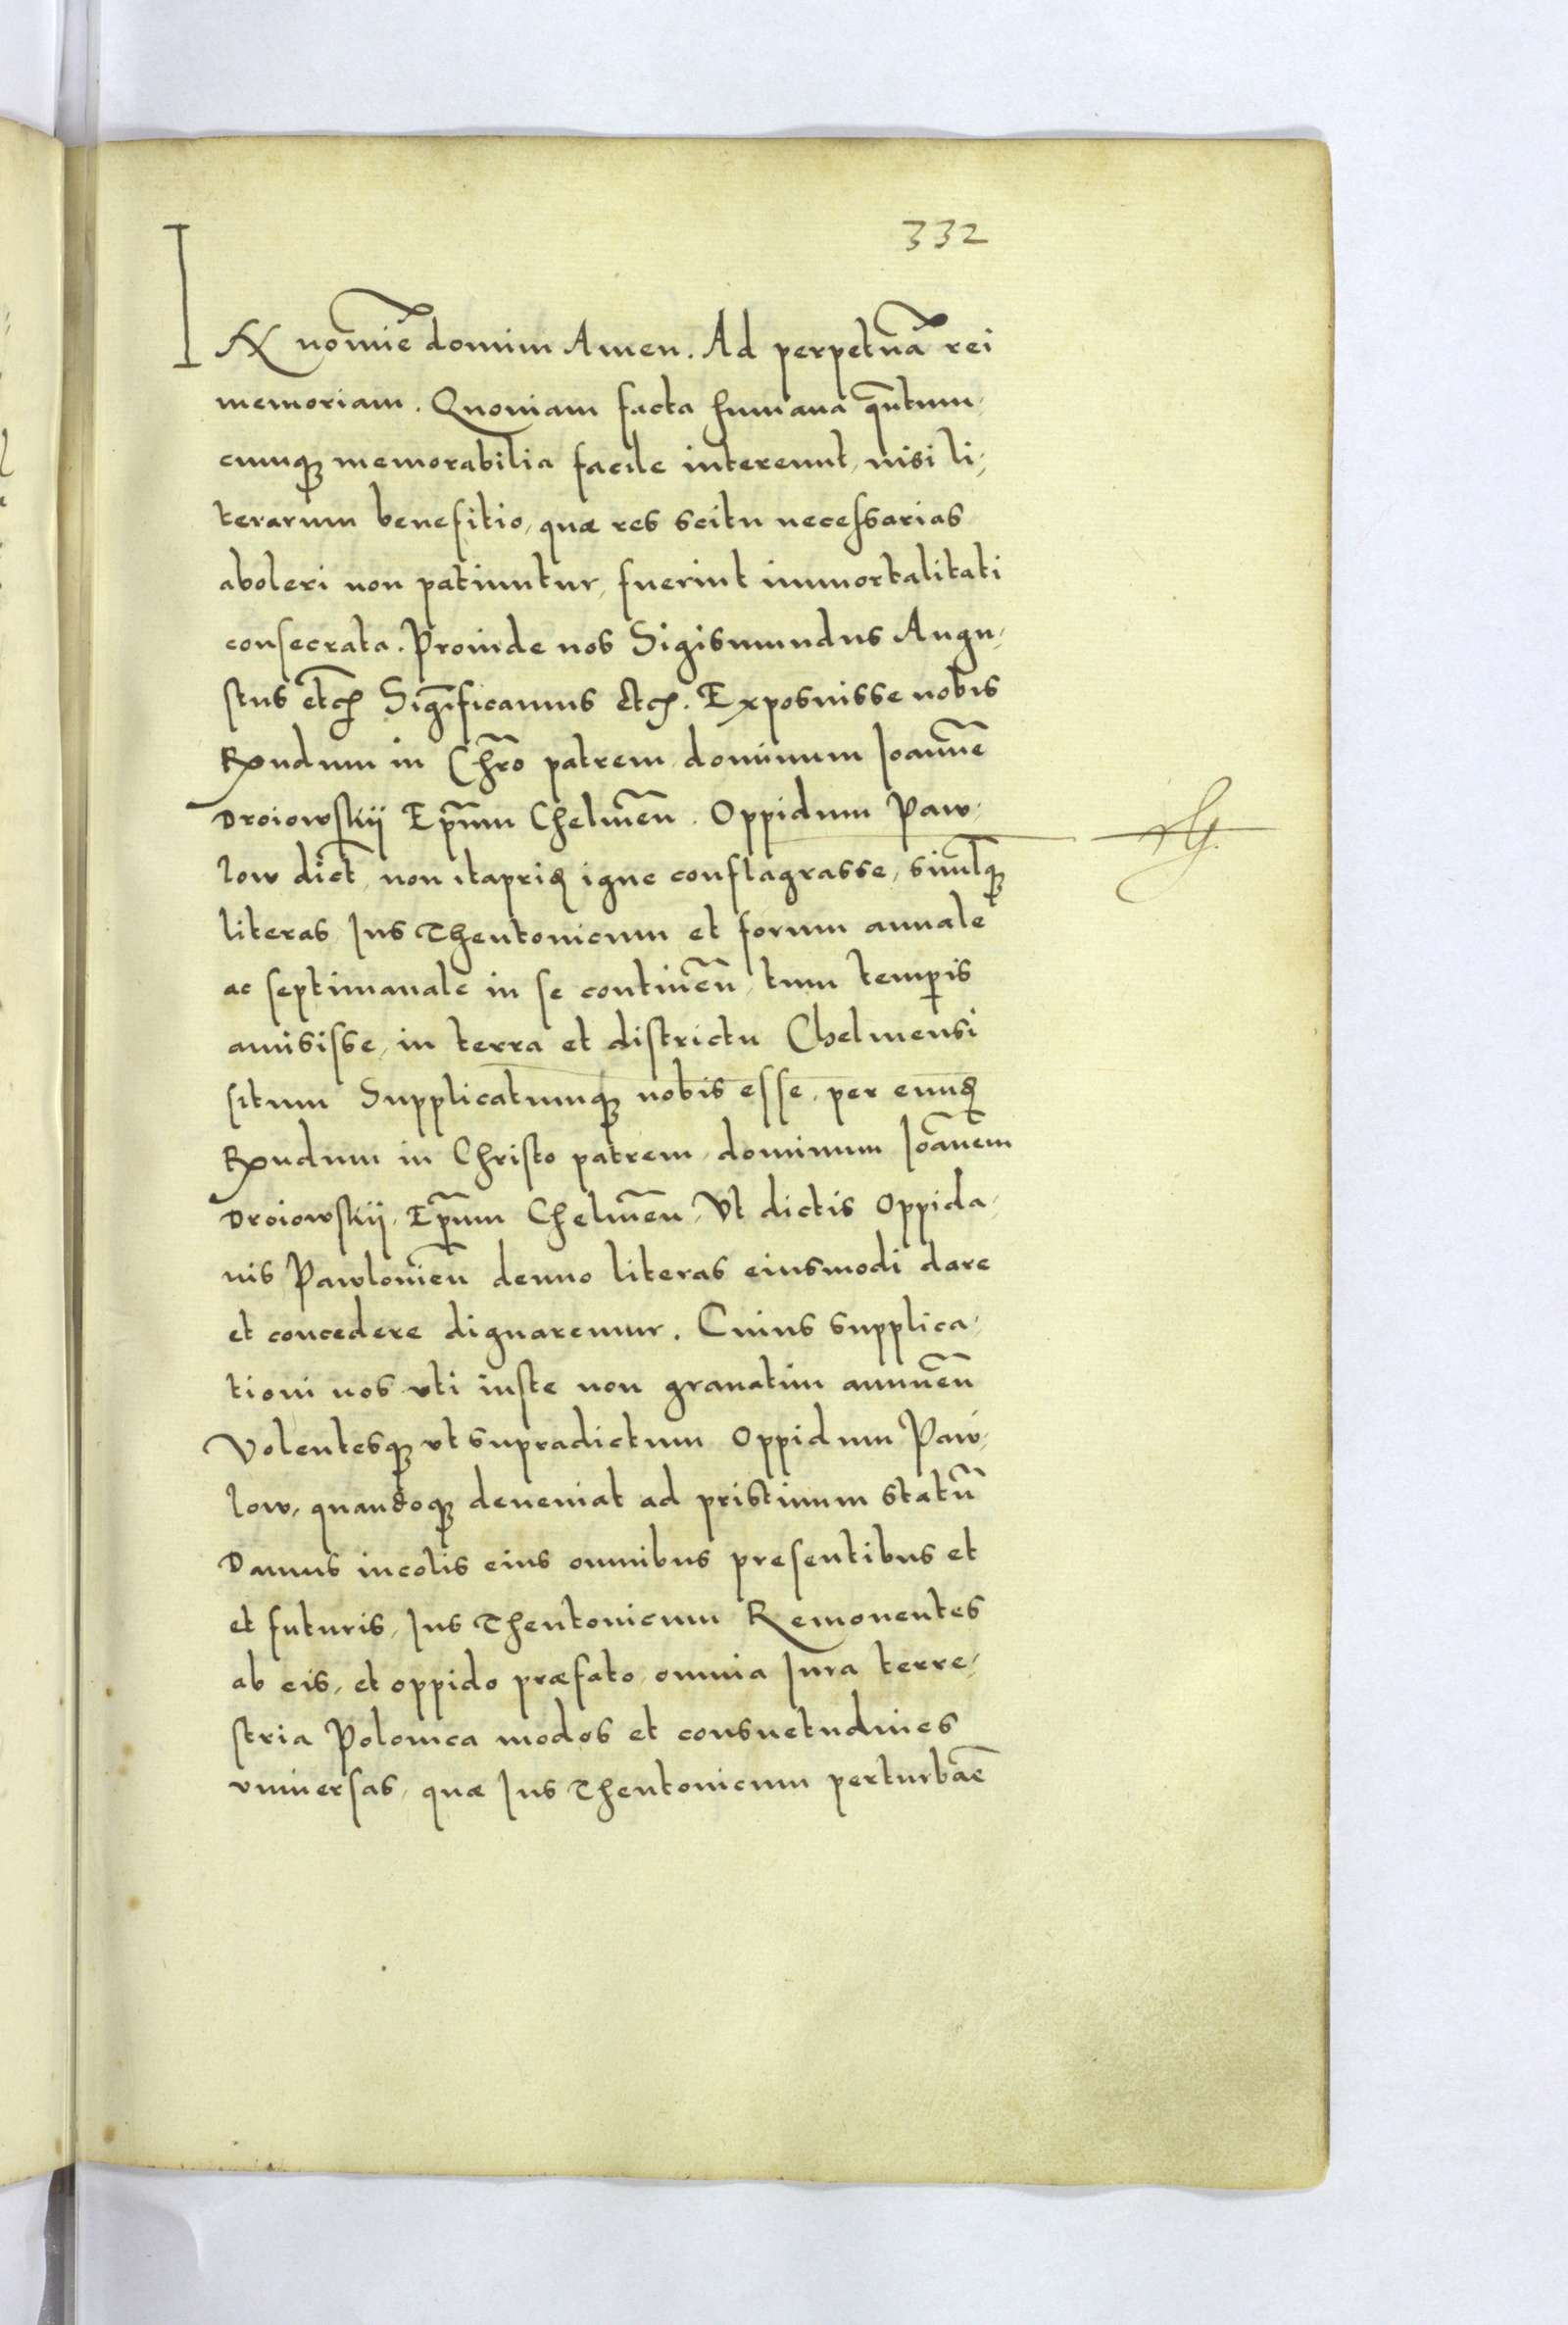 332
IN nomīe domini Amen. Ad perpetuā rei
memoriam. Quoniam facta humana qūtum,
cumq3 memorabilia facile intereunt, nisi li,
terarum benefitio, quæ res scitu necessarias
aboleri non patiuntur, fuerint immortalitati
consecrata. Proinde nos Sigismundus Augu,
stus etc̄ Sigīficamus etc. Exposuisse nobis
Rndum in Chr̄o patrem dominum Ioannē
Droiowskij Ep̄um Chelmēn. Oppidum Paw,
low dict̄, non itaprid igne conflagrasse, simulq3
literas Ius Theutonicum et forum annale
ac septimanale in se continēn, tum temp̄is
amisisse, in terra et districtu Chelmensi
situm Supplicatumq3 nobis esse, per eund
Rndum in Christo patrem dominum Ioān̄em
Droiowskij, Ep̄um Chelmēn, Vt dictis Oppida,
nis Pawloviēn denuo literas eiusmodi dare
et concedere dignaremur. Cuius supplica,
tioni nos vti iuste non grauatim annuēn
Volentesq3 vt supradictum Oppidum Paw,
low, quandoq3 deueniat ad pristinum statū
Damus incolis eius omnibus presentibus et
et futuris, Ius Theutonicum Remouentes
ab eis, et oppido præfato omnia Iura terre,
stria Polonica modos et consuetudines
vniuersas, quæ Ius Theutonicum perturbāe